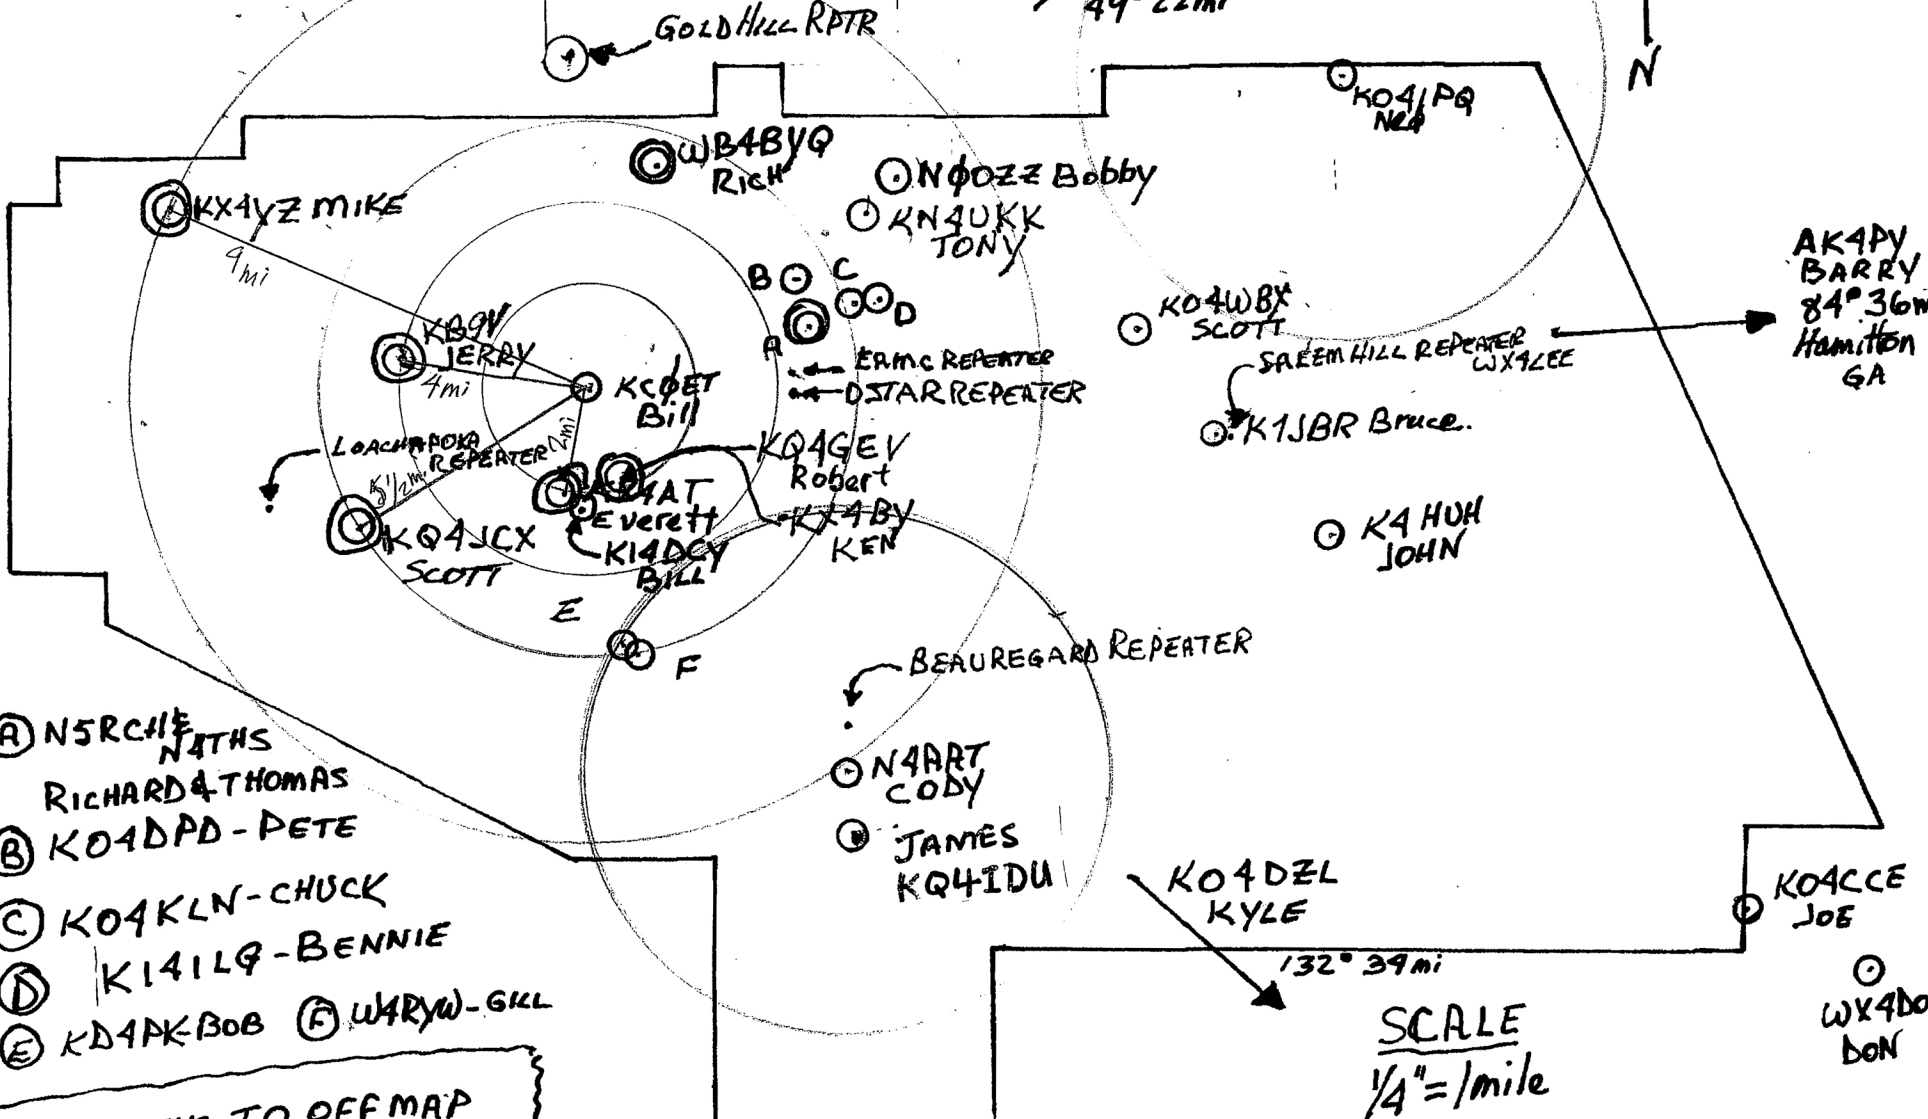 GOLD HILL RPTR
49° 22mi
N
KO4IPQ
WB4BYQ
RICH
NØOZZ Bobby
KN4UKK
TONY
KX4YZ MIKE
9 mi
B
C
D
A
KB9V
JERRY
4mi
KCØET
Bill
2mi
ERMC REPEATER
DSTAR REPEATER
KO4WBX
SCOTT
SALEM HILL REPEATER
WX4LEE
AK4PY
BARRY
84° 36m
Hamilton
GA
K1JBR Bruce.
LOACHAPOKA
REPEATER
5 1/2 mi
KQ4GEV
Robert
4AT
Everett
KX4BY
KEN
KQ4JCX
SCOTT
KI4DCY
BILL
K4HUH
JOHN
E
F
BEAUREGARD REPEATER
N4AAT
CODY
JAMES
KQ4IDU
KO4DZL
KYLE
132° 39mi
KO4CCE
JOE
WX4DO
DON
A N5RCH &
N4THS
RICHARD & THOMAS
B KO4DPD - PETE
C KO4KLN - CHUCK
D KI4ILQ - BENNIE
E KD4PK - BOB F W4RYW - GILL
SCALE
1/4" = 1 mile
TO OFF MAP